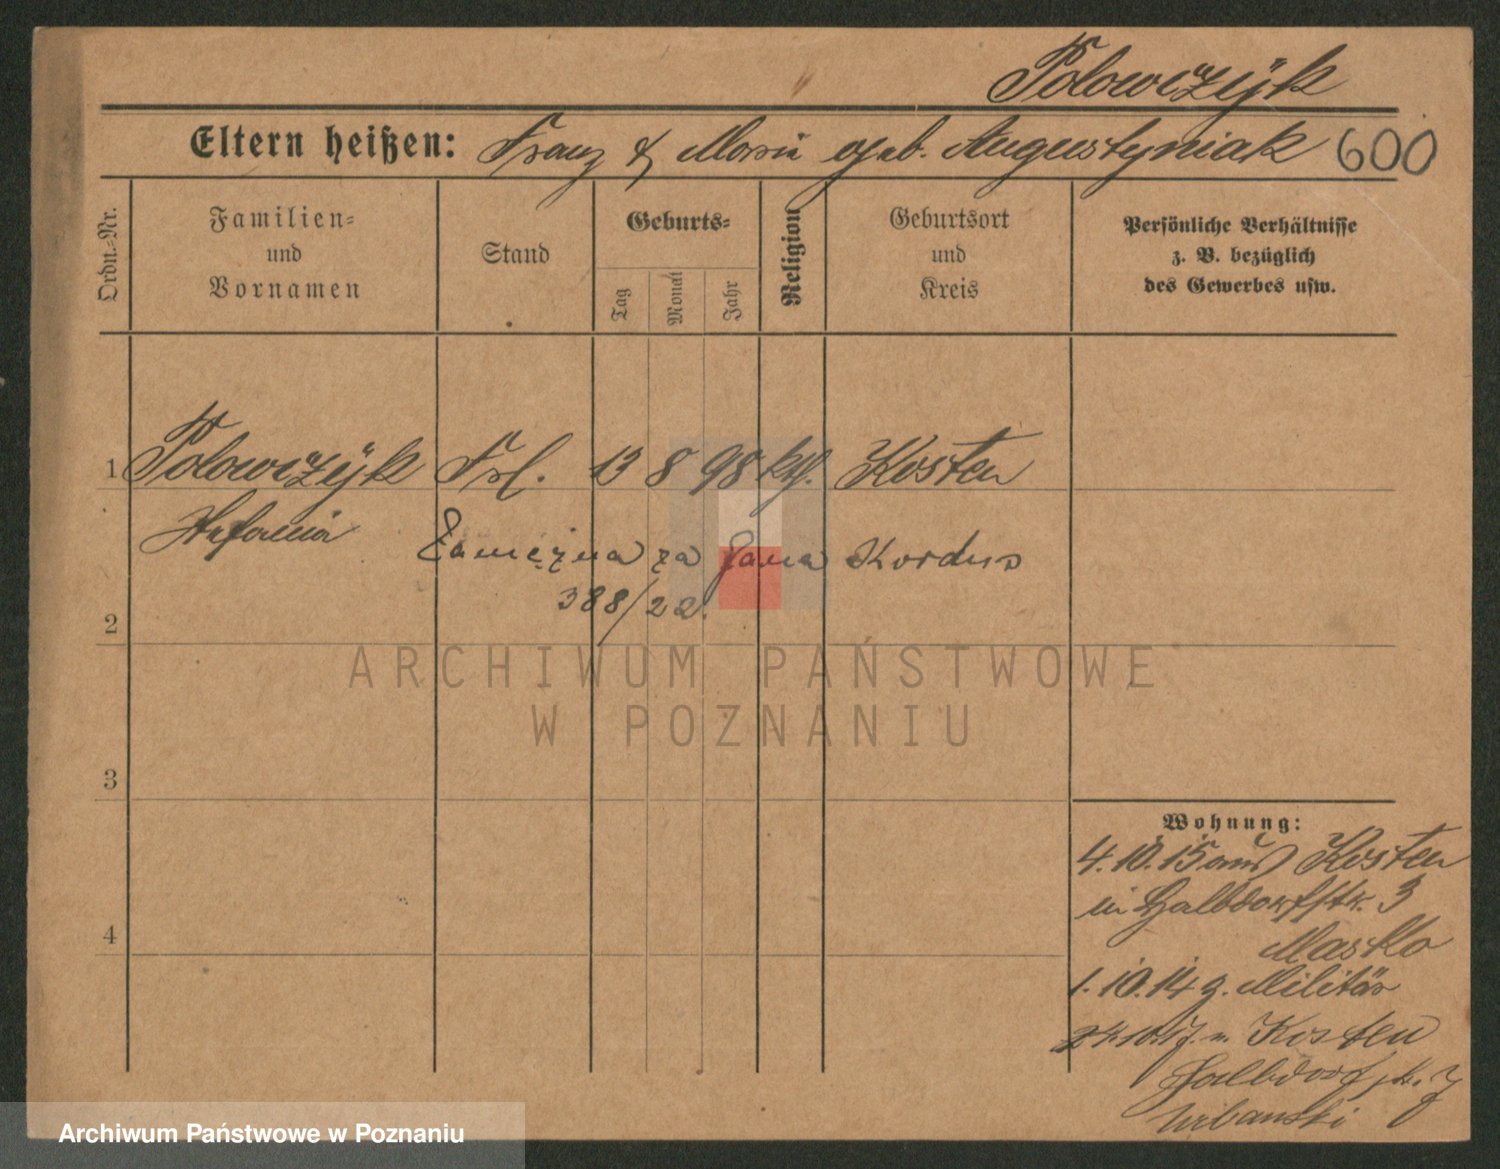 Polowczÿk
Eltern heißen: Franz & Maria geb. Augustyniak 600
Ordn.-Nr.
Familien-
und
Vornamen
Stand
Geburts-
Tag
Monat
Jahr
Religion
Geburtsort
und
Kreis
Persönliche Verhältnisse
z. B. bezüglich
des Gewerbes usw.
1 Polowczÿk Frl. 13 8 98 kth. Kosten
Stefania
Zamężna za Jana Kordus
388/22.
2
3
4
Wohnung:
4.10.15 aus Kosten
in Halbdorfstr. 3
1.10.14 z. Militär
n. Kosten
Halbdorfstr. 7
Urbanski
ARCHIWUM PAŃSTWOWE
W POZNANIU
Archiwum Państwowe w Poznaniu